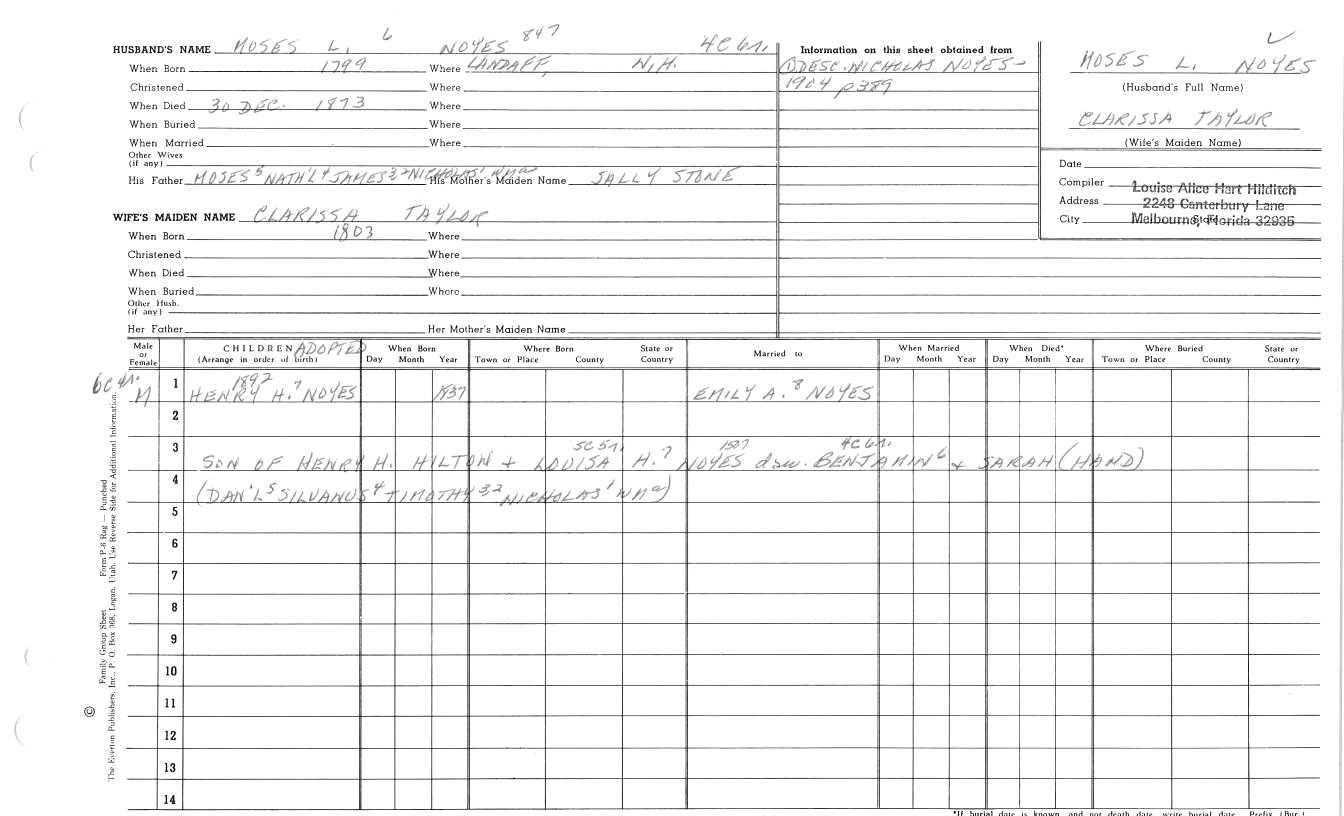 HUSBAND'S NAME MOSES L. 6 NOYES 847 4C 6r.
When Born 1799 Where LANDAFF, N.H.
Christened Where
When Died 30 DEC. 1873 Where
When Buried Where
When Married Where
Other Wives
(if any)
His Father MOSES 5 NATH'L 4 JAMES 3,2 NICHOLAS 1 Wm a His Mother's Maiden Name SALLY STONE
WIFE'S MAIDEN NAME CLARISSA TAYLOR
When Born 1803 Where
Christened Where
When Died Where
When Buried Where
Other Hush.
(if any)
Her Father Her Mother's Maiden Name
Information on this sheet obtained from
DESC. NICHOLAS NOYES-
1904 p389
MOSES L. NOYES
(Husband's Full Name)
CLARISSA TAYLOR
(Wife's Maiden Name)
Date
Compiler Louise Alice Hart Hilditch
Address 2248 Canterbury Lane
City State Melbourne, Florida 32935
Male or Female
CHILDREN ADOPTED
(Arrange in order of birth)
When Born
Day Month Year
Where Born
Town or Place County State or Country
Married to
When Married
Day Month Year
When Died*
Day Month Year
Where Buried
Town or Place County State or Country
6C 4r.
M 1 1892 HENRY H. 7 NOYES 1837 EMILY A. 8 NOYES
2
3 5C 5r. 1507 4C 6r.
SON OF HENRY H. HILTON + LOUISA H. 7 NOYES dau. BENJAMIN 6 + SARAH (HAND)
4
(DAN'L 5 SILVANUS 4 TIMOTHY 3,2 NICHOLAS 1 Wm a)
5
6
7
8
9
10
11
12
13
14
© Family Group Sheet Form P-6 Rag — Punched
The Everton Publishers, Inc., P. O. Box 368, Logan, Utah. Use Reverse Side for Additional Information.
*If burial date is known and not death date, write burial date. Prefix (Bur.)